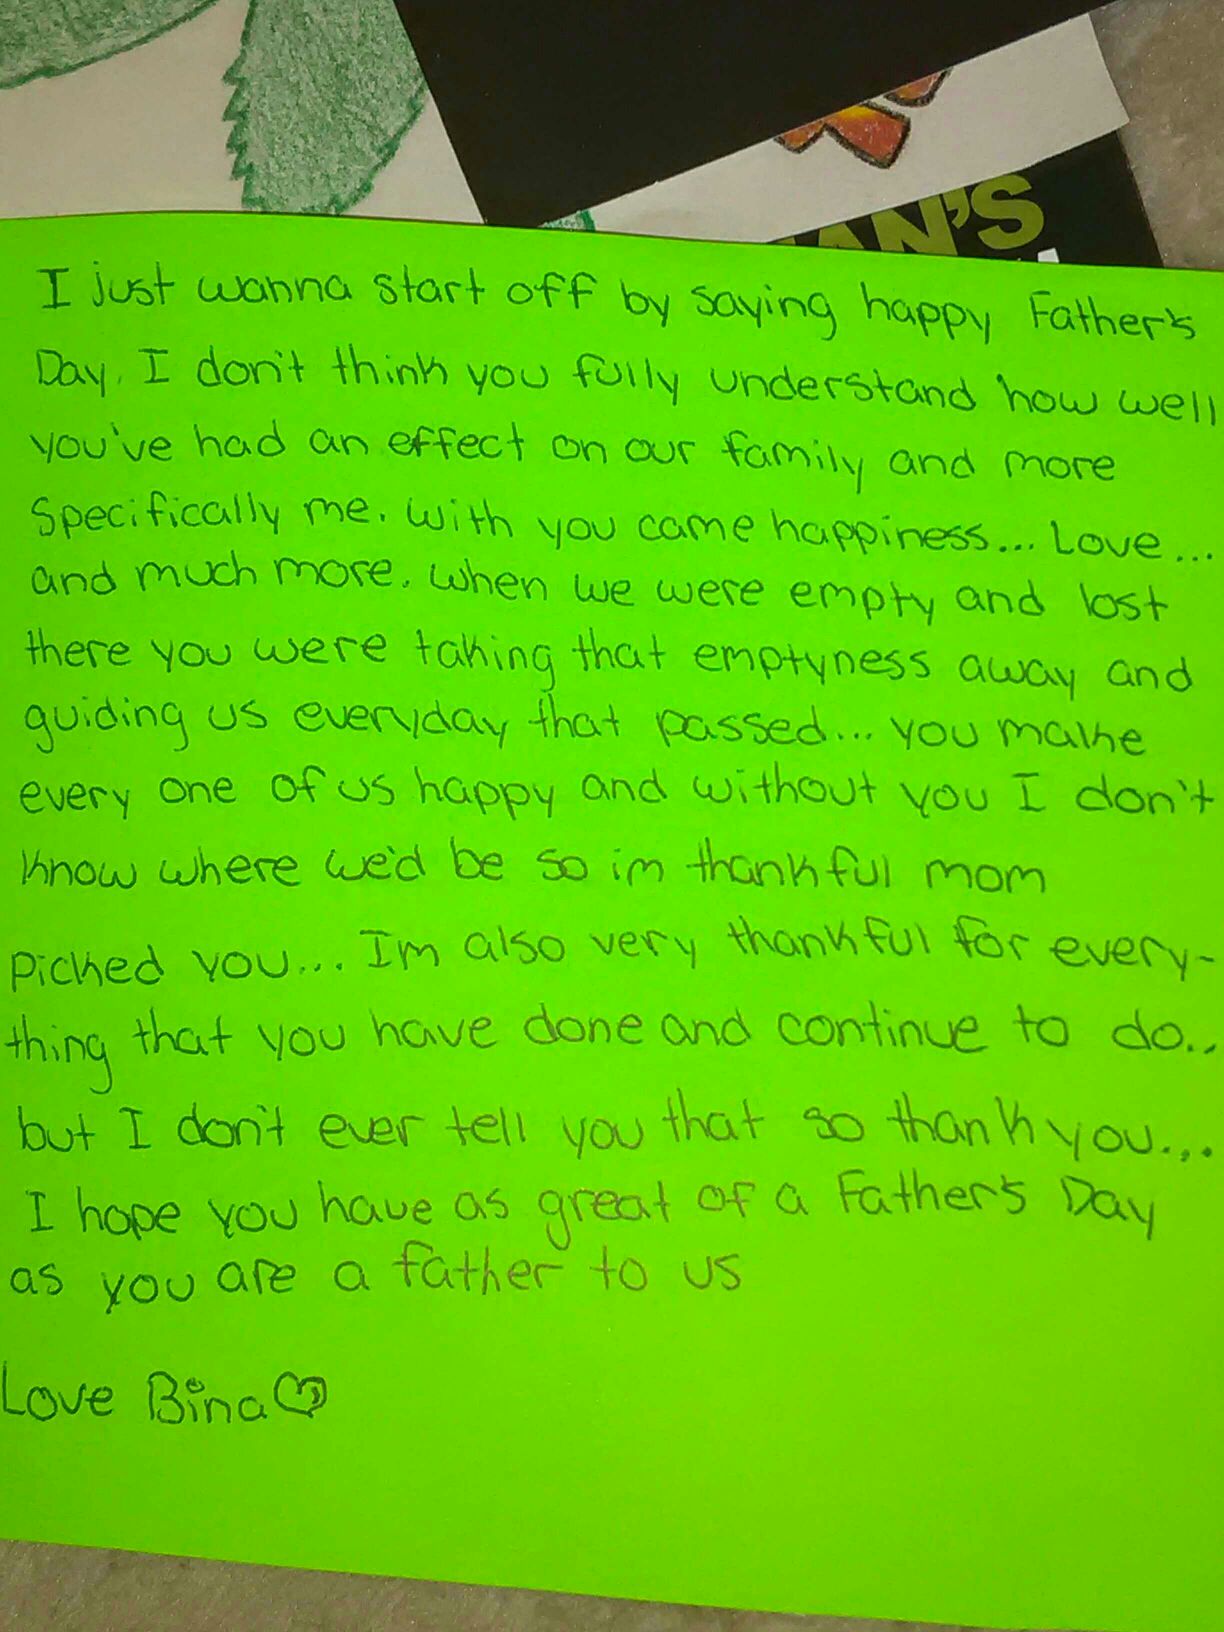 AN'S
I just wanna start off by saying happy Father's
Day. I don't think you fully understand how well
you've had an effect on our family and more
Specifically me. With you came happiness... Love...
and much more. When we were empty and lost
there you were taking that emptyness away and
guiding us everyday that passed... you make
every one of us happy and without you I don't
know where we'd be so im thankful mom
Picked you... I'm also very thankful for every-
thing that you have done and continue to do..
but I don't ever tell you that so thank you...
I hope you have as great of a Father's Day
as you are a father to us
Love Bina♡